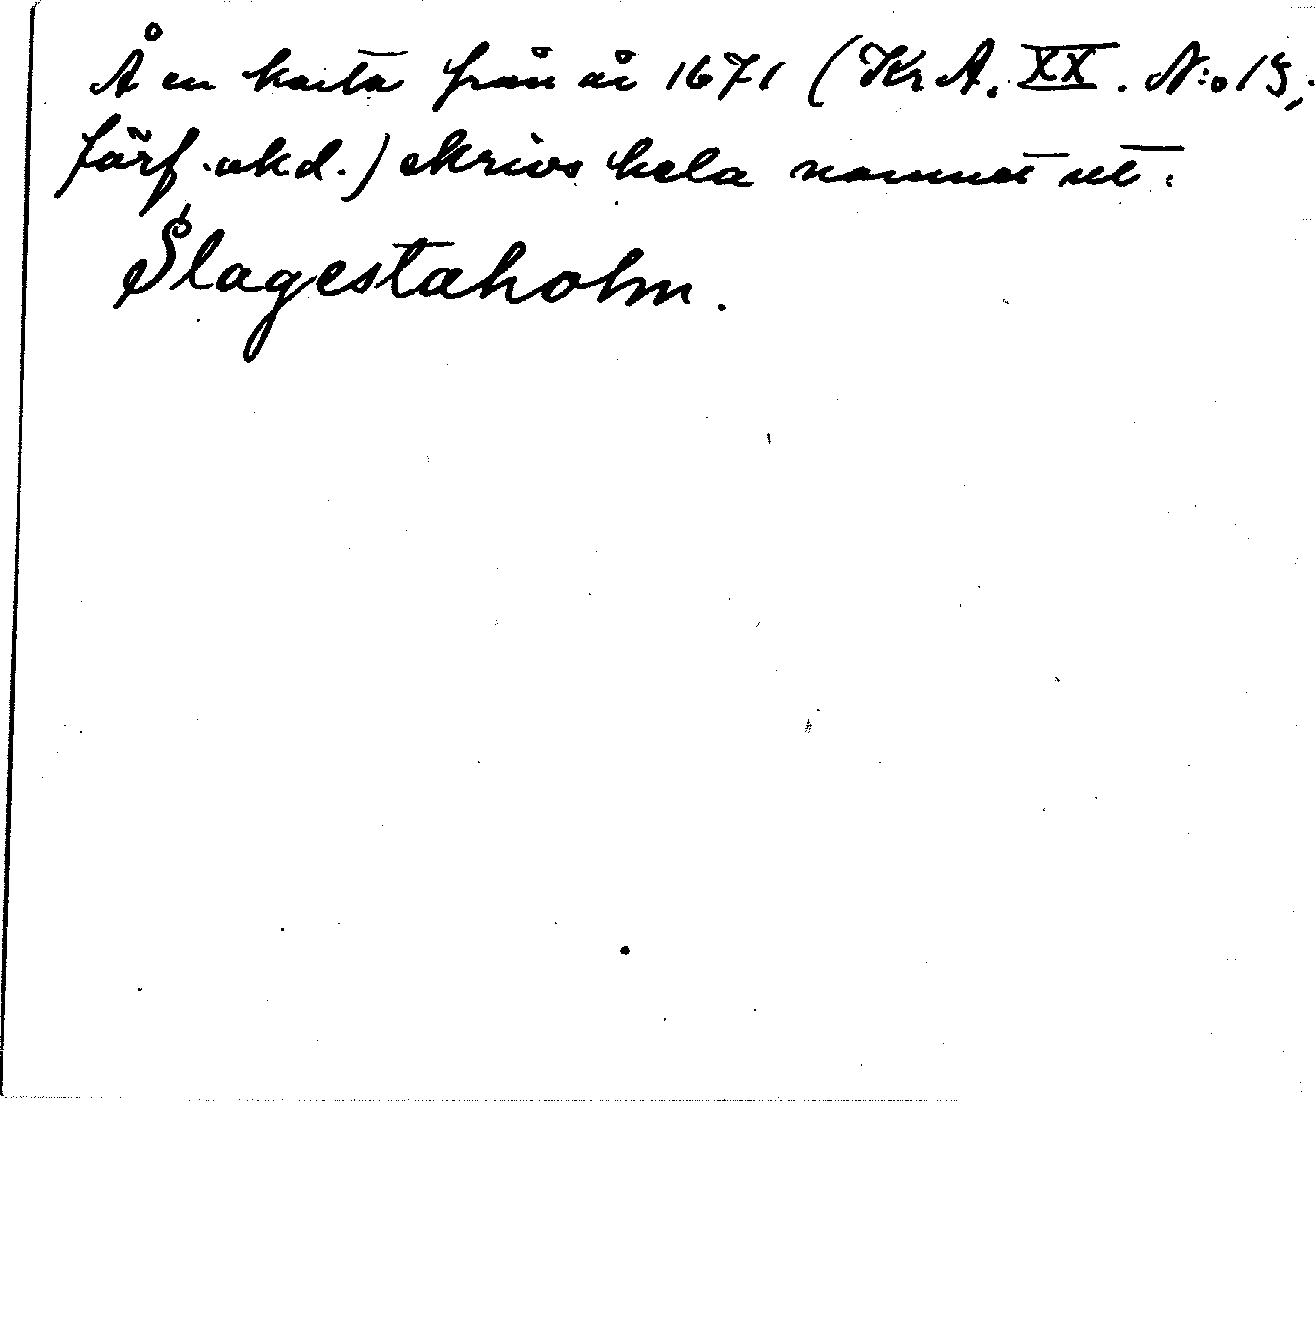 Å en karta från år 1671 (Kr A. XX. N:o 15,
förf. okd.) skrivs hela namnet ut:
Slagestaholm.